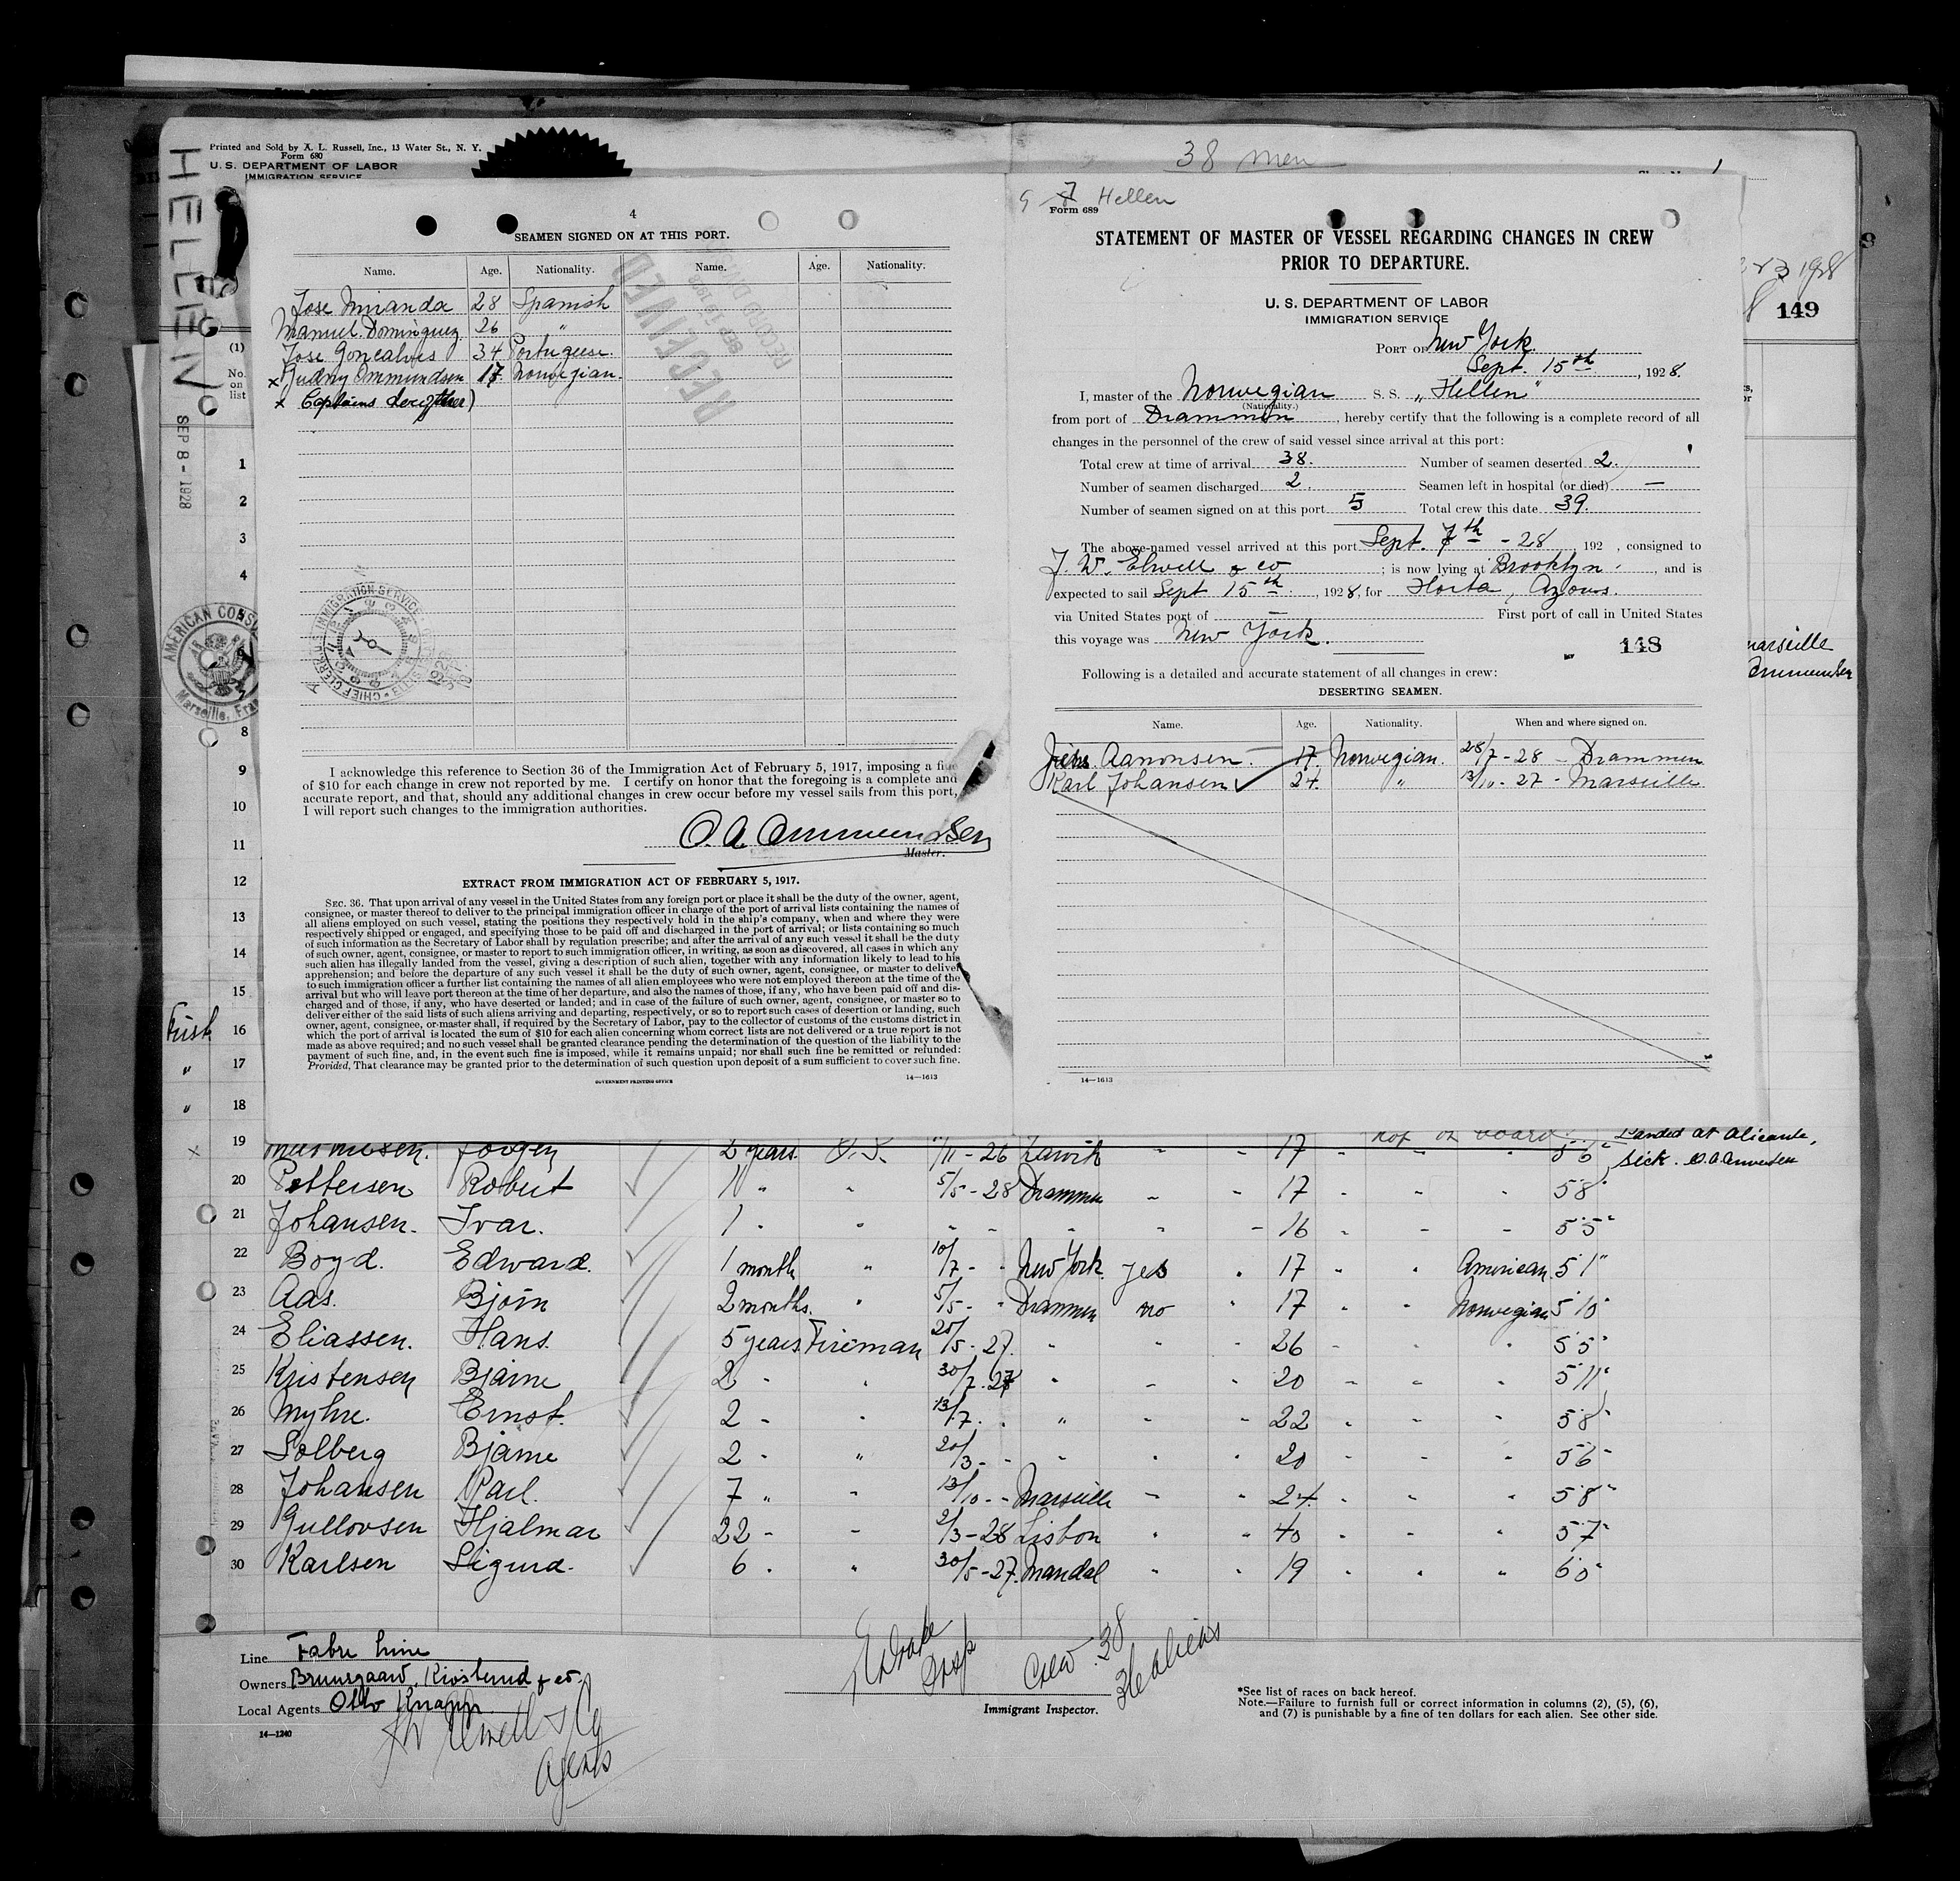 Printed and Sold by A. L. Russell, Inc., 13 Water St., N. Y.
Form 680
U. S. DEPARTMENT OF LABOR
IMMIGRATION SERVICE
HELLEN
SEP 8 - 1928
(1)
No. on list
38 men
149
4
SEAMEN SIGNED ON AT THIS PORT.
Name. Age. Nationality. Name. Age. Nationality.
Jose Miranda 28 Spanish
Manuel Dominguez 26 "
Jose Goncalves 34 Portuguese.
x Gudny Ommundsen 17 Norwegian.
x Captains
RECEIVED
SEP 19 192
RECORD DIV
I acknowledge this reference to Section 36 of the Immigration Act of February 5, 1917, imposing a fine
of $10 for each change in crew not reported by me. I certify on honor that the foregoing is a complete and
accurate report, and that, should any additional changes in crew occur before my vessel sails from this port,
I will report such changes to the immigration authorities.
O. A. Ommundsen
Master.
EXTRACT FROM IMMIGRATION ACT OF FEBRUARY 5, 1917.
SEC. 36. That upon arrival of any vessel in the United States from any foreign port or place it shall be the duty of the owner, agent,
consignee, or master thereof to deliver to the principal immigration officer in charge of the port of arrival lists containing the names of
all aliens employed on such vessel, stating the positions they respectively hold in the ship's company, when and where they were
respectively shipped or engaged, and specifying those to be paid off and discharged in the port of arrival; or lists containing so much
of such information as the Secretary of Labor shall by regulation prescribe; and after the arrival of any such vessel it shall be the duty
of such owner, agent, consignee, or master to report to such immigration officer, in writing, as soon as discovered, all cases in which any
such alien has illegally landed from the vessel, giving a description of such alien, together with any information likely to lead to his
apprehension; and before the departure of any such vessel it shall be the duty of such owner, agent, consignee, or master to deliver
to such immigration officer a further list containing the names of all alien employees who were not employed thereon at the time of the
arrival but who will leave port thereon at the time of her departure, and also the names of those, if any, who have been paid off and dis-
charged and of those, if any, who have deserted or landed; and in case of the failure of such owner, agent, consignee, or master so to
deliver either of the said lists of such aliens arriving and departing, respectively, or so to report such cases of desertion or landing, such
owner, agent, consignee, or master shall, if required by the Secretary of Labor, pay to the collector of customs of the customs district in
which the port of arrival is located the sum of $10 for each alien concerning whom correct lists are not delivered or a true report is not
made as above required; and no such vessel shall be granted clearance pending the determination of the question of the liability to the
payment of such fine, and, in the event such fine is imposed, while it remains unpaid; nor shall such fine be remitted or refunded:
Provided, That clearance may be granted prior to the determination of such question upon deposit of a sum sufficient to cover such fine.
GOVERNMENT PRINTING OFFICE
14—1613
Hellen
Form 689
STATEMENT OF MASTER OF VESSEL REGARDING CHANGES IN CREW
PRIOR TO DEPARTURE.
U. S. DEPARTMENT OF LABOR
IMMIGRATION SERVICE
PORT OF New York
Sept. 15th, 1928.
I, master of the Norwegian S. S. "Hellen"
(Nationality.)
from port of Drammen, hereby certify that the following is a complete record of all
changes in the personnel of the crew of said vessel since arrival at this port:
Total crew at time of arrival 38. Number of seamen deserted 2.
Number of seamen discharged 2. Seamen left in hospital (or died) —
Number of seamen signed on at this port 5 Total crew this date 39.
The above-named vessel arrived at this port Sept. 7th - 28 192 , consigned to
J. W. Elwell & co ; is now lying at Brooklyn. , and is
expected to sail Sept 15th, 1928, for Horta, Azores.
via United States port of — First port of call in United States
this voyage was New York.
148
Following is a detailed and accurate statement of all changes in crew:
DESERTING SEAMEN.
Name. Age. Nationality. When and where signed on.
Aanonsen 17. Norwegian. 28/7 - 28 - Drammen
Karl Johansen 24. " 13/10 - 27 - Marseille
14—1613
AMERICAN CONSU
Marseille, Fran
Marseille
1
2
3
4
8
9
10
11
12
13
14
15
16
17
18
19 Jorgen 2 years O.S. /11 - 26 17 not on board 5 6 Landed at Alicante,
sick.
20 Pettersen Robert 1 " " 5/5 - 28 Drammen - - 17 - - - 5 8"
21 Johansen. Ivar. 1 " " - - - - - 16 - - - 5 5"
22 Boyd. Edward. 1 month " 10/7 - - New York yes " 17 " " American 5 1"
23 Aas. Bjorn 2 months. " 5/5 - " Drammen no " 17 " " Norwegian 5 10"
24 Eliassen. Hans. 5 years Fireman 25/5 - 27. " - - 26 - - " 5 5"
25 Kristensen Bjarne 2 - " 30/7 - 27 " - - 20 - - - 5 11"
26 Myhre. Ernst. 2 - " 13/7 - . " - - 22 - - - 5 8"
27 Solberg Bjarne 2 - " 20/3 - - - - - 20 - - - 5 6"
28 Johansen Karl. 7 " - 13/10 - - Marseille - - 24 - - - 5 8"
29 Gullovsen Hjalmar 22 - - 2/3 - 28 Lisbon " " 40 - - - 5 7"
30 Karlsen Sigurd. 6 . " 30/5 - 27. Mandal " - 19 - - " 6 0"
Line Fabre Line
Owners Bruusgaard, Kiosterud & co.
Local Agents Otto Knapp
14—1240
J W Elwell & Co
Agents
Drake
Insp
Crew 38
aliens
Immigrant Inspector.
*See list of races on back hereof.
Note.—Failure to furnish full or correct information in columns (2), (5), (6),
and (7) is punishable by a fine of ten dollars for each alien. See other side.